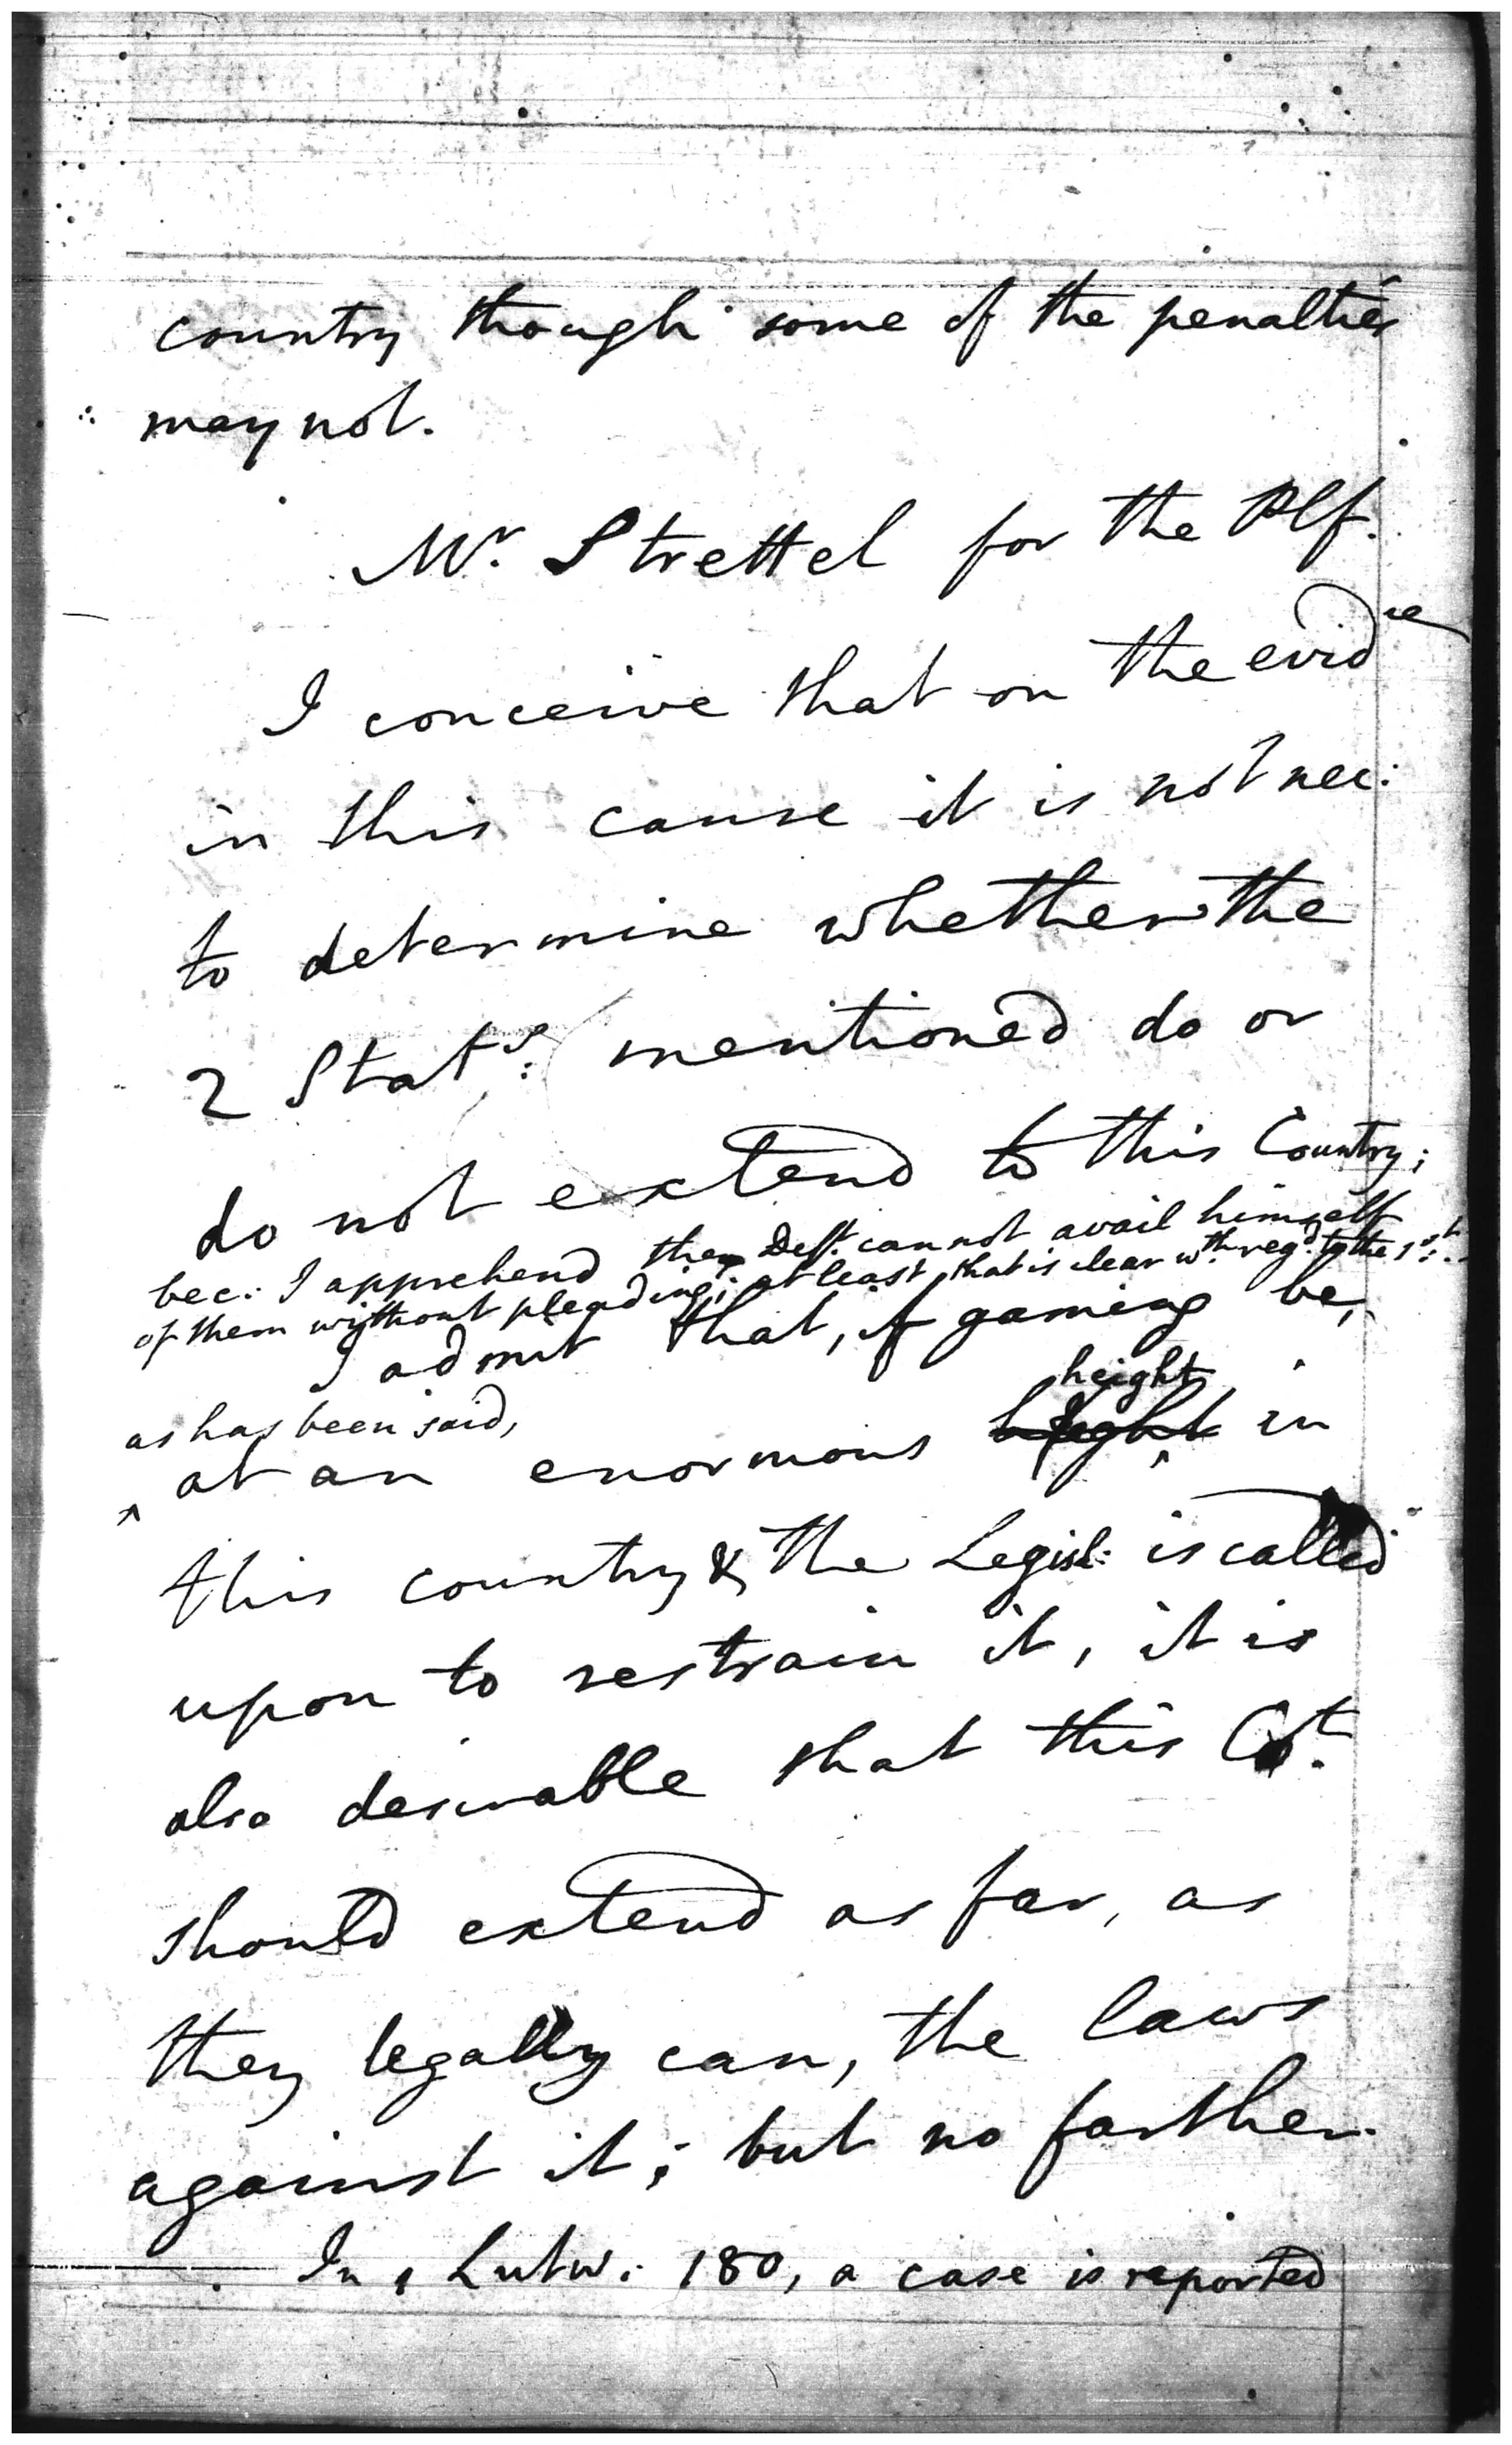 country though some of the penalties
may not.
Mr. Strettel for the Plf.
I conceive that on the evidce
in this cause it is not nec:
to determine whether the
2 Stats: mentioned do or
do not extend to this Country;
bec: I apprehend the Deft. cannot avail himself
of them without pleading; at least, that is clear wth. regd. to the 1st:.
I admit that, if gaming be,
height
as has been said,
at an enormous in
this country & the Legisl: is called
upon to restrain it, it is
also desirable that this Ct.
should extend as far, as
they legally can, the laws
against it; but no farther.
In 1 Lutw: 180, a case is reported